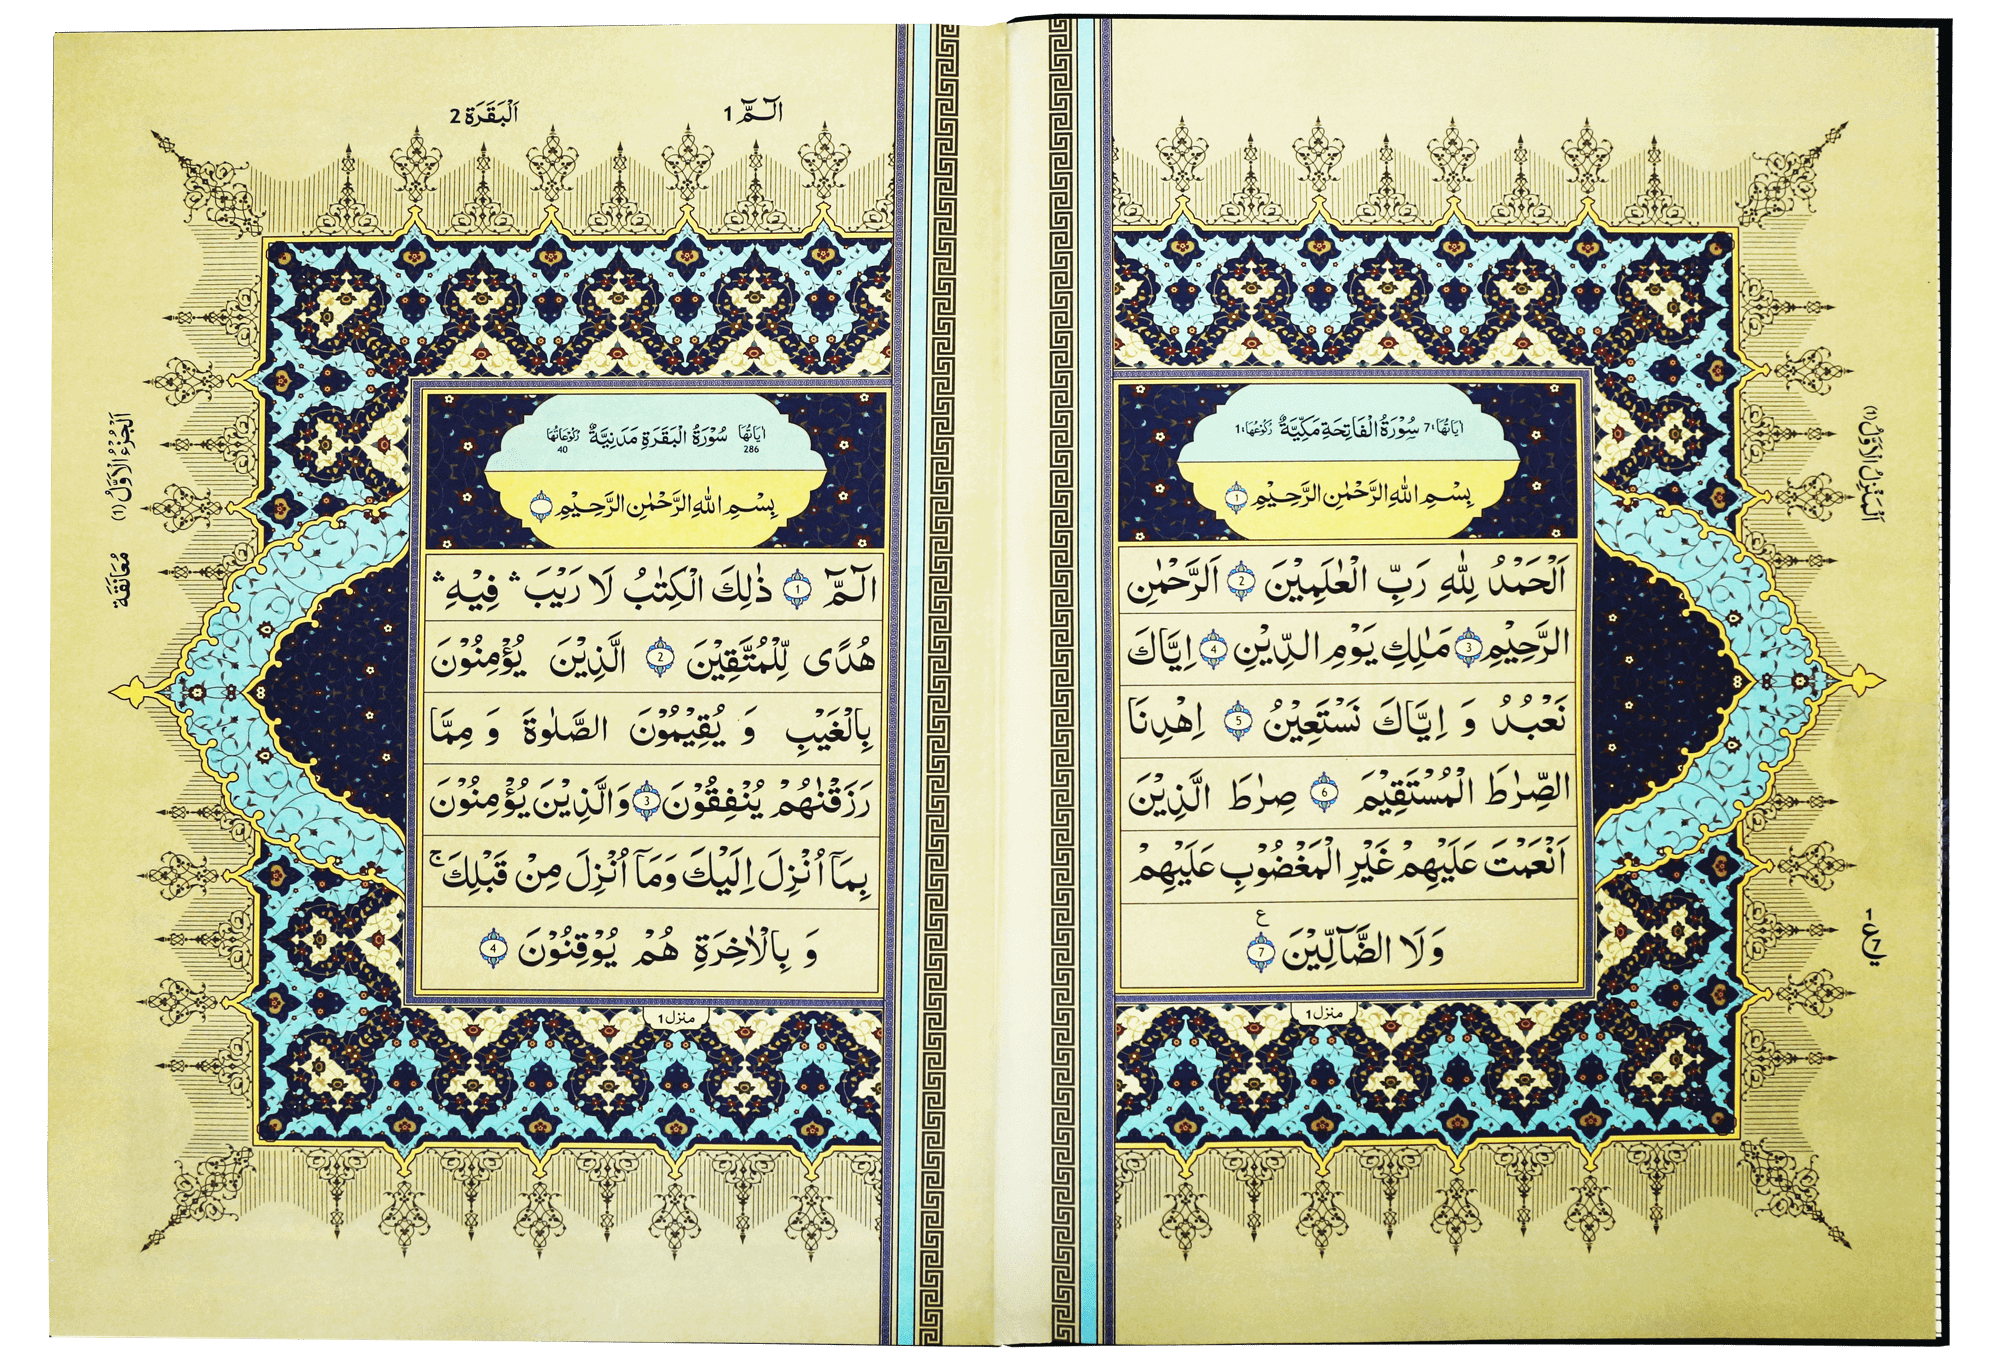 اٰيَاتُهَا:7 سُوْرَةُ الْفَاتِحَةِ مَكِّيَّةٌ رُكُوْعُهَا:1
بِسْمِ اللهِ الرَّحْمٰنِ الرَّحِيْمِ 1
اَلْحَمْدُ لِلّٰهِ رَبِّ الْعٰلَمِيْنَ 2 اَلرَّحْمٰنِ
الرَّحِيْمِ 3 مٰلِكِ يَوْمِ الدِّيْنِ 4 اِيَّاكَ
نَعْبُدُ وَ اِيَّاكَ نَسْتَعِيْنُ 5 اِهْدِنَا
الصِّرٰطَ الْمُسْتَقِيْمَ 6 صِرٰطَ الَّذِيْنَ
اَنْعَمْتَ عَلَيْهِمْ غَيْرِ الْمَغْضُوْبِ عَلَيْهِمْ
وَلَا الضَّآلِّيْنَ 7 ع
منزل 1
اَلْمَنْزِلُ الْاَوَّلُ (1)
1 ع 7
الٓـمّٓ 1
اَلْبَقَرَة 2
اٰيَاتُهَا 286 سُوْرَةُ الْبَقَرَةِ مَدَنِيَّةٌ رُكُوْعَاتُهَا 40
بِسْمِ اللهِ الرَّحْمٰنِ الرَّحِيْمِ
الٓـمّٓ 1 ذٰلِكَ الْكِتٰبُ لَا رَيْبَ ۛ فِيْهِ ۛ
هُدًى لِّلْمُتَّقِيْنَ 2 الَّذِيْنَ يُؤْمِنُوْنَ
بِالْغَيْبِ وَ يُقِيْمُوْنَ الصَّلٰوةَ وَ مِمَّا
رَزَقْنٰهُمْ يُنْفِقُوْنَ 3 وَالَّذِيْنَ يُؤْمِنُوْنَ
بِمَآ اُنْزِلَ اِلَيْكَ وَمَآ اُنْزِلَ مِنْ قَبْلِكَ ۚ
وَ بِالْاٰخِرَةِ هُمْ يُوْقِنُوْنَ 4
منزل 1
اَلْجُزْءُ الْاَوَّلُ (1)
مُعَانَقَة